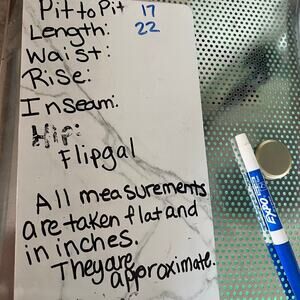 Pit to Pit 17
Length: 22
Waist:
Rise:
Inseam:
Hip:
Flipgal
All measurements
are taken flat and
in inches.
They are
approximate.
EXPO